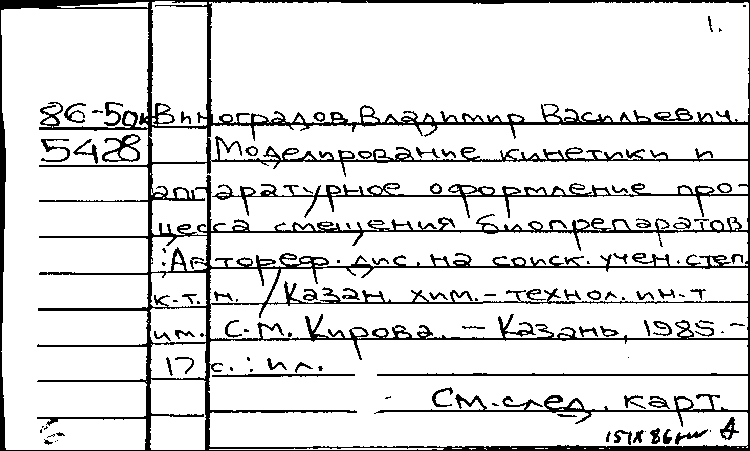 1.
86-50к Виноградов, Владимир Васильевич.
5428 Моделирование кинетики и
аппаратурное оформление про-
цесса смещения биопрепаратов
: Автореф. дис. на соиск. учен. степ.
к.т.н. / Казан. хим.-технол. ин-т
им. С.М. Кирова. - Казань, 1985. -
17 с. : ил.
См. след. карт.